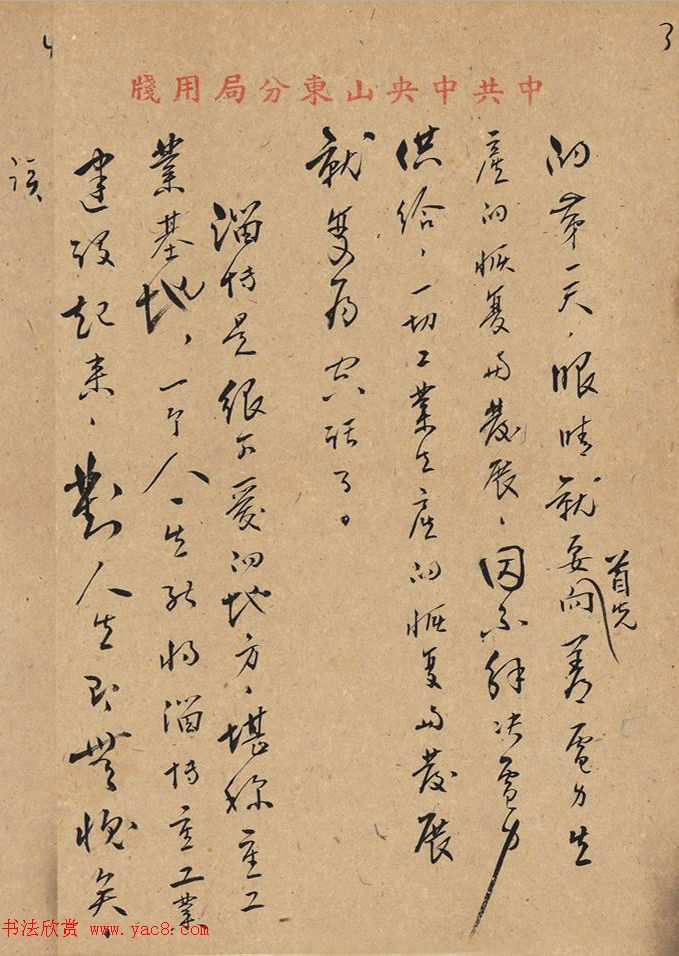 3
中共中央山東分局用牋
的第一天，眼睛就要首先向着電力生
產的恢复与發展，因不解决電力
供给，一切工業生產的恢复与發展
就变为空話了。
淄博是很可愛的地方，堪称重工
業基地，一个人一生能将淄博重工業
建設起来，對人生即無愧矣，
4
书法欣赏 www.yac8.com